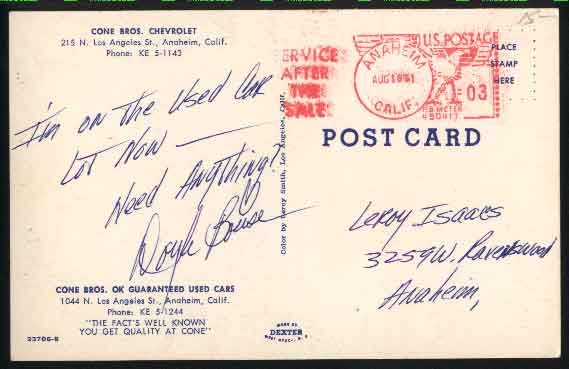 CONE BROS. CHEVROLET
215 N. Los Angeles St., Anaheim, Calif.
Phone: KE 5-1143
I'm on the Used Car
Lot Now —
Need Anything?
CONE BROS. OK GUARANTEED USED CARS
1044 N. Los Angeles St., Anaheim, Calif.
Phone: KE 5-1244
"THE FACT'S WELL KNOWN
YOU GET QUALITY AT CONE"
23706-B
Color by Leroy Smith, Los Angeles, Calif.
MADE BY
DEXTER
WEST NYACK, N. Y.
SERVICE
AFTER
THE
SALE
ANAHEIM
AUG 18
CALIF.
U.S. POSTAGE
03
P.B. METER
PLACE
STAMP
HERE
15-
POST CARD
Leroy Isaacs
3259 W. Ravenswood
Anaheim,